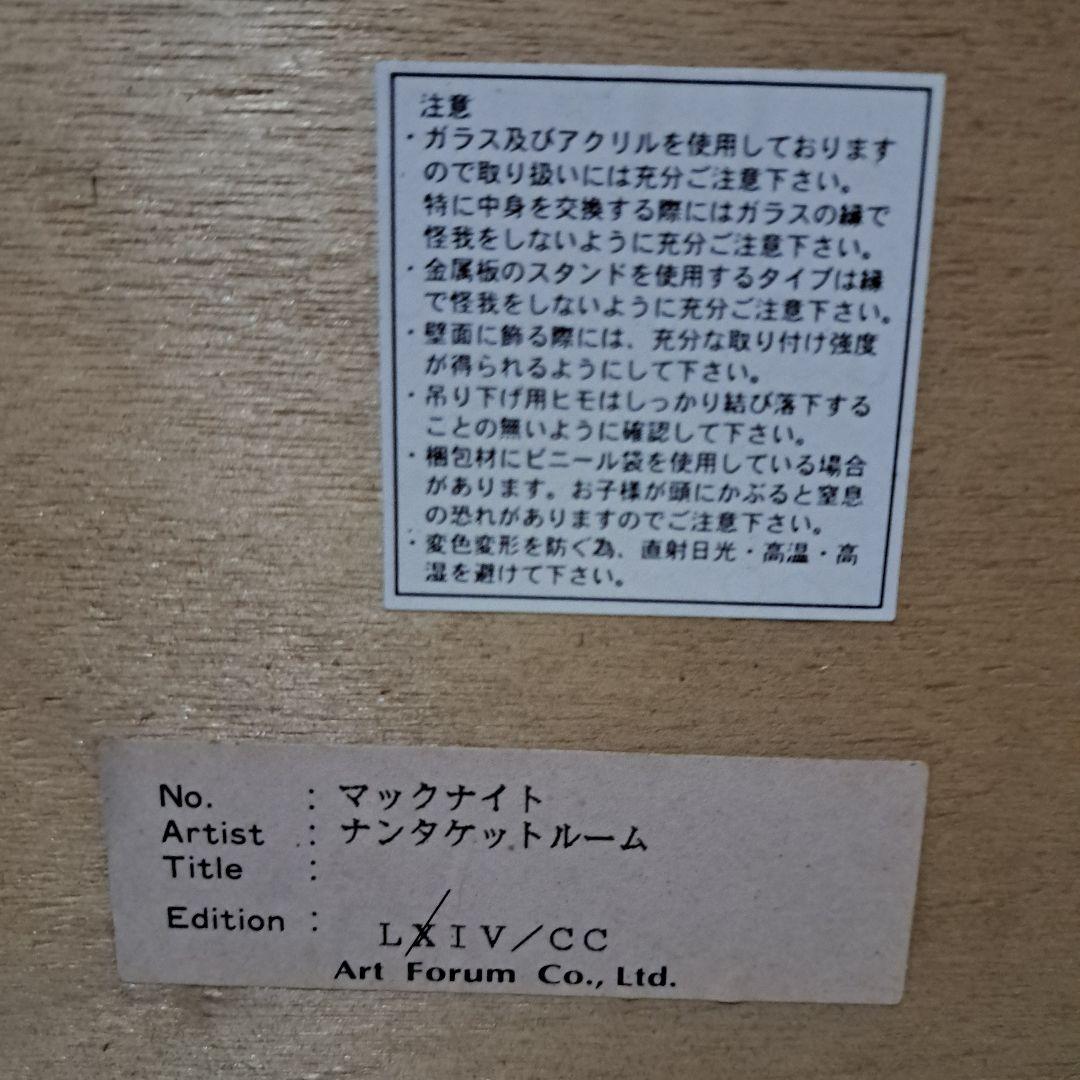 注意
・ガラス及びアクリルを使用しております
ので取り扱いには充分ご注意下さい。
特に中身を交換する際にはガラスの縁で
怪我をしないように充分ご注意下さい。
・金属板のスタンドを使用するタイプは縁
で怪我をしないように充分ご注意下さい。
・壁面に飾る際には、充分な取り付け強度
が得られるようにして下さい。
・吊り下げ用ヒモはしっかり結び落下する
ことの無いように確認して下さい。
・梱包材にビニール袋を使用している場合
があります。お子様が頭にかぶると窒息
の恐れがありますのでご注意下さい。
・変色変形を防ぐ為、直射日光・高温・高
湿を避けて下さい。
No. : マックナイト
Artist : ナンタケットルーム
Title :
Edition : LXIV/CC
Art Forum Co., Ltd.